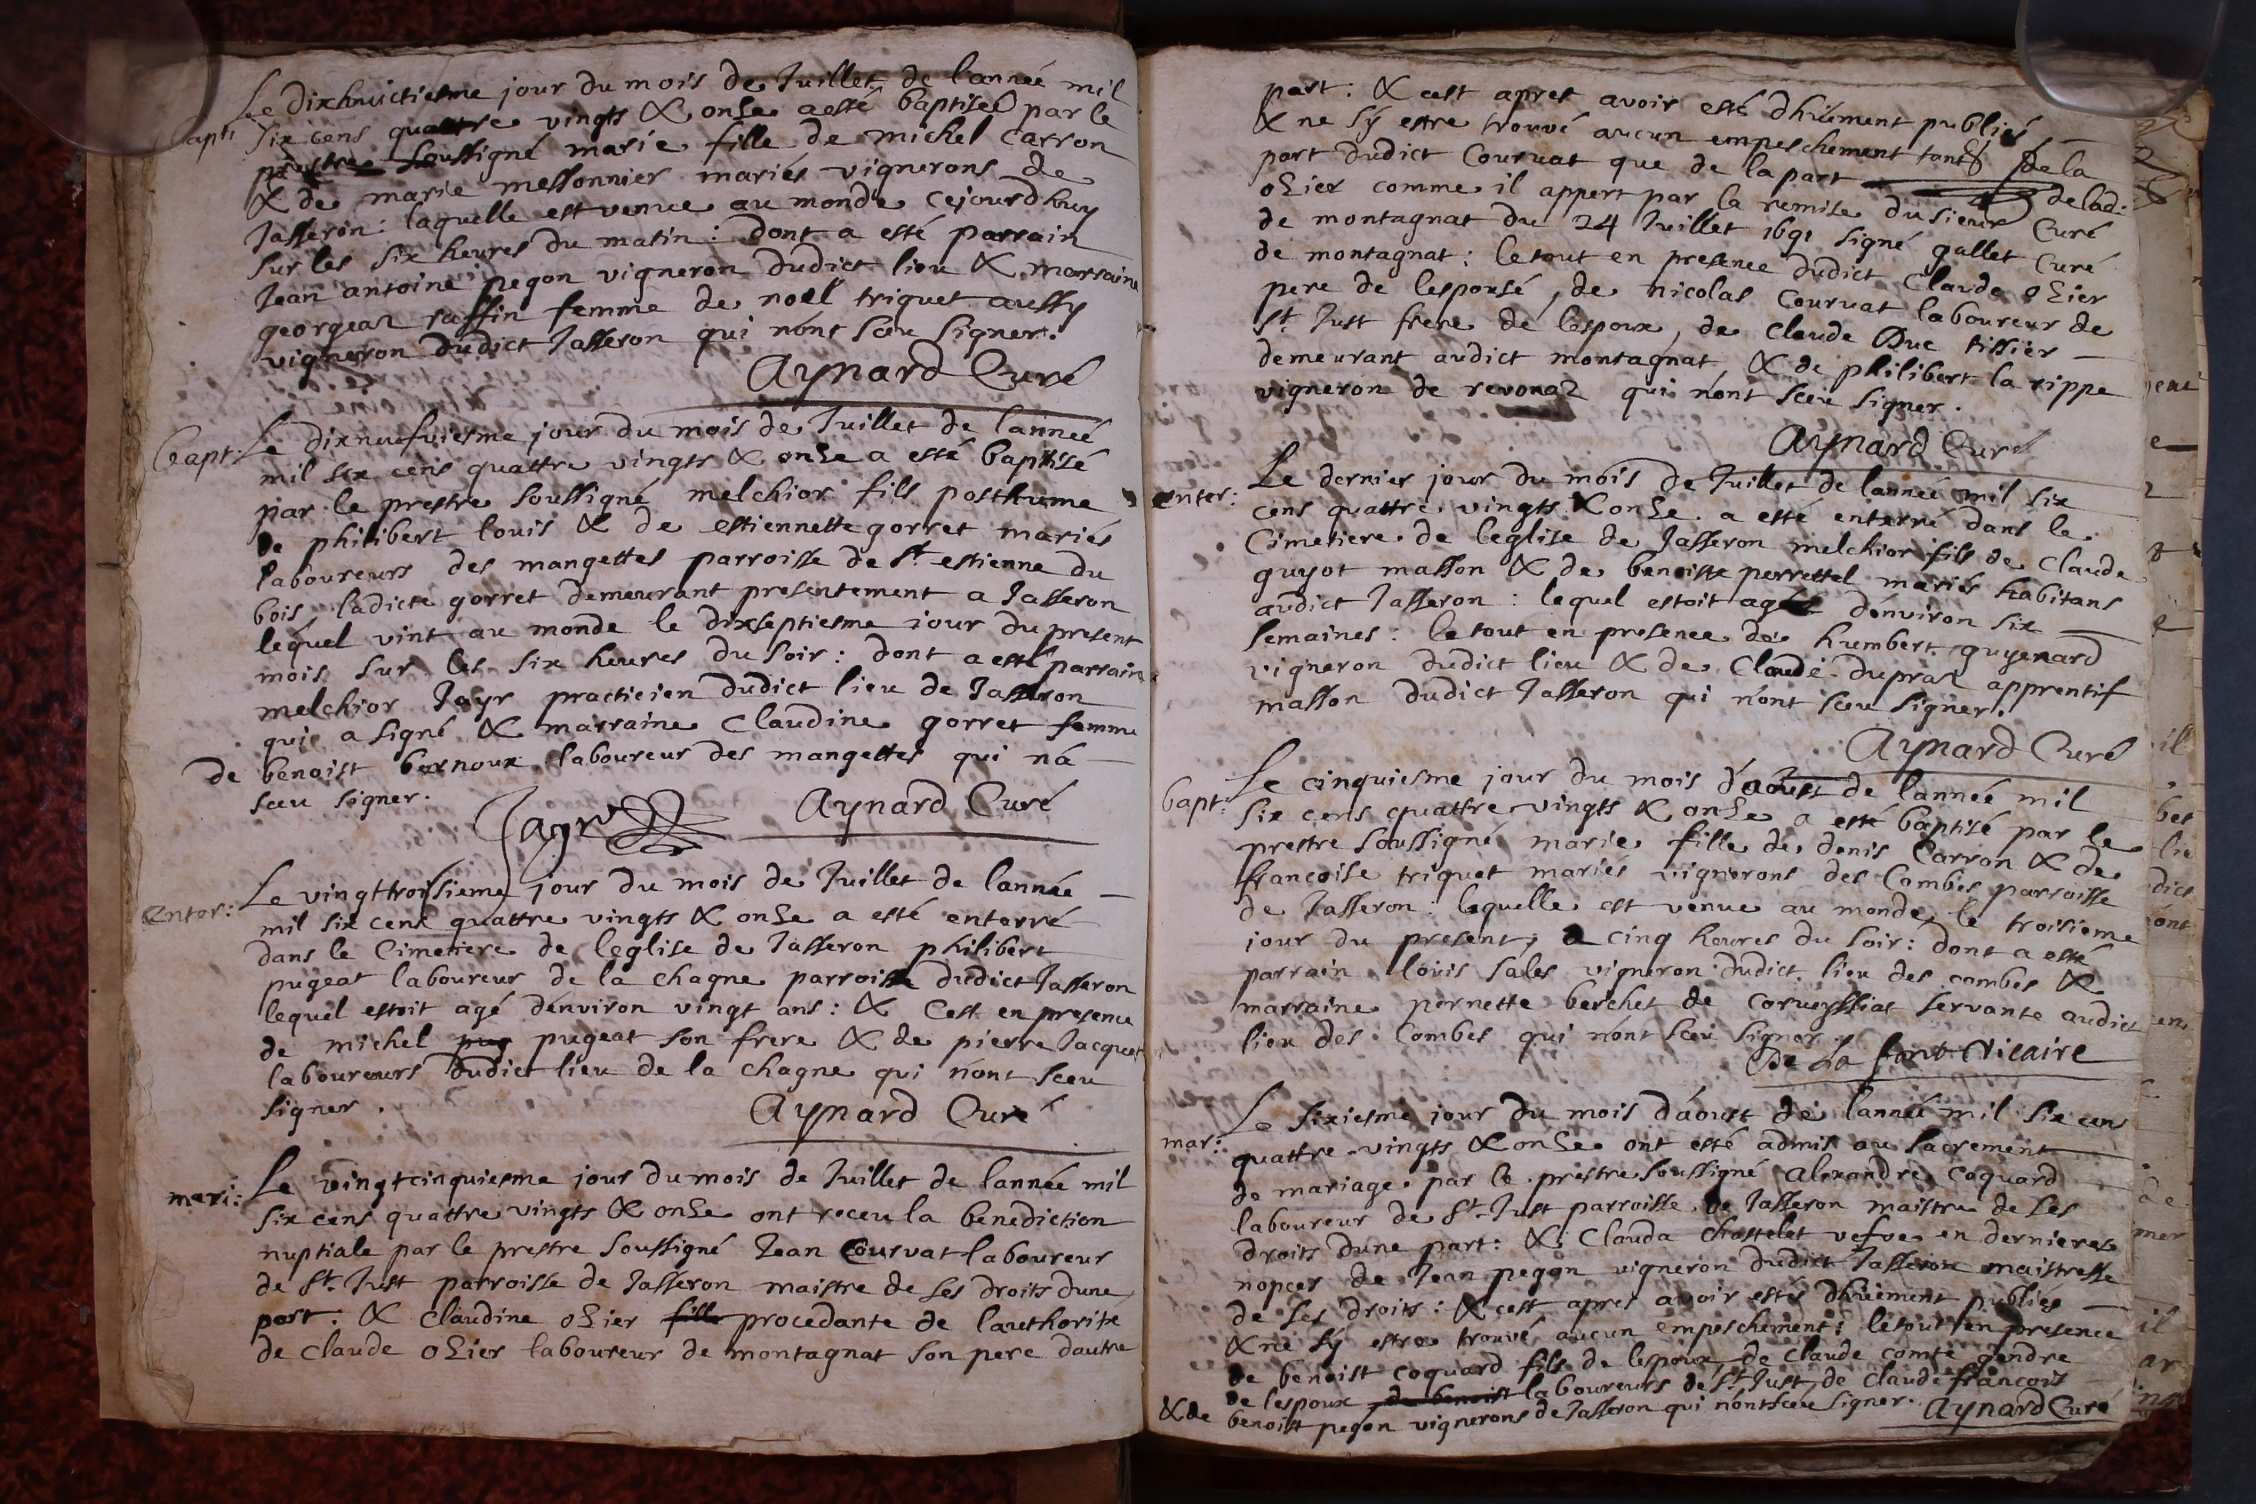 bapt:
Le dixhuictiesme jour du mois de Juillet de l'année mil
six cens quattre vingts & onze a esté baptisée par le
prestre soussigné marie fille de michel Carron
& de marie messonnier mariés vignerons de
Jasseron: laquelle est venue au monde cejourdhuy
sur les six heures du matin: dont a esté parrain
Jean antoine pegon vigneron dudict lieu & marraine
georgeaz ruffin femme de noel triquet aussy
vigneron dudict Jasseron qui n'ont sceu signer.
Aynard Curé
bapt: Le dixneufviesme jour du mois de Juillet de l'année
mil six cens quattre vingts & onze a esté baptisé
par le prestre soussigné melchior fils posthume
de philibert louis & de estiennette gorret mariés
laboureurs des mangettes parroisse de St estienne du
bois ladicte gorret demeurant presentement a Jasseron
lequel vint au monde le dixseptiesme jour du present
mois sur les six heures du soir: dont a esté parrain
melchior Jayr practicien dudict lieu de Jasseron
qui a signé & marraine Claudine gorret femme
de benoist bornoux laboureur des mangettes qui n'a
sceu signer.
Jayr Aynard Curé
enter: Le vingttroisieme jour du mois de Juillet de l'année
mil six cens quattre vingts & onze a esté enterré
dans le Cimetiere de l'eglise de Jasseron philibert
pugeat laboureur de la chagne parroisse dudict Jasseron
lequel estoit agé d'environ vingt ans: & Cest en presence
de michel pug pugeat son frere & de pierre Jacquet
laboureurs dudict lieu de la chagne qui n'ont sceu
signer.
Aynard Curé
mari: Le vingtcinquiesme jour du mois de Juillet de l'année mil
six cens quattre vingts & onze ont receu la benediction
nuptiale par le prestre soussigné Jean Courvat laboureur
de St Just parroisse de Jasseron maistre de ses droits dune
part: & Claudine ozier fille procedante de l'authorité
de Claude ozier laboureur de montagnat son pere dautre
part: & cest apres avoir esté dhuement publiés
& ne s'y estre trouvé aucun empeschement tant de la
part dudict Courvat que de la part de lad:
ozier comme il appert par la remise du sieur Curé
de montagnat du 24 Juillet 1691 signé gallet Curé
de montagnat: le tout en presence dudict Claude ozier
pere de l'espousé, de nicolas Courvat laboureur de
St Just frere de l'espoux, de Claude Duc tissier
demeurant audict montagnat & de philibert la rippe
vigneron de revonaz qui n'ont sceu signer.
Aynard Curé
enter: Le dernier jour du mois de Juillet de l'année mil six
cens quattre vingts & onze a esté enterré dans le
Cimetiere de l'eglise de Jasseron melchior fils de Claude
guyot masson & de benoiste perrettel mariés habitans
audict Jasseron: lequel estoit agé d'environ six
semaines: le tout en presence de humbert guyenard
vigneron dudict lieu & de Claude dupraz apprentif
masson dudict Jasseron qui n'ont sceu signer.
Aynard Curé
bapt: Le cinquiesme jour du mois d'aoust de l'année mil
six cens quattre vingts & onze a esté baptisé par le
prestre soussigné marie fille de denis Carron & de
francoise triquet mariés vignerons des Combes parroisse
de Jasseron: laquelle est venue au monde le troisieme
jour du present, a cinq heures du soir: dont a esté
parrain louis sales vigneron dudict lieu des combes &
marraine pernette berchet de corveyssiat servante audict
lieu des Combes qui n'ont sceu signer.
De La font Vicaire
mar: Le sixiesme jour du mois d'aoust de l'année mil six cens
quattre vingts & onze ont esté admis au sacrement
de mariage par le prestre soussigné Alexandre Coquard
laboureur de St Just parroisse de Jasseron maistre de ses
droits dune part: & Clauda chastelet vefve en dernieres
nopces de Jean pegon vigneron dudict Jasseron maistresse
de ses droits: & cest apres avoir estés dhuement publies
& ne s'y estre trouvé aucun empeschement: le tout en presence
de benoist Coquard fils de l'espoux, de Claude comte gendre
de l'espoux de benoist laboureurs de St Just, de Claude francois
& de benoist pegon vignerons de Jasseron qui n'ont sceu signer. Aynard Curé